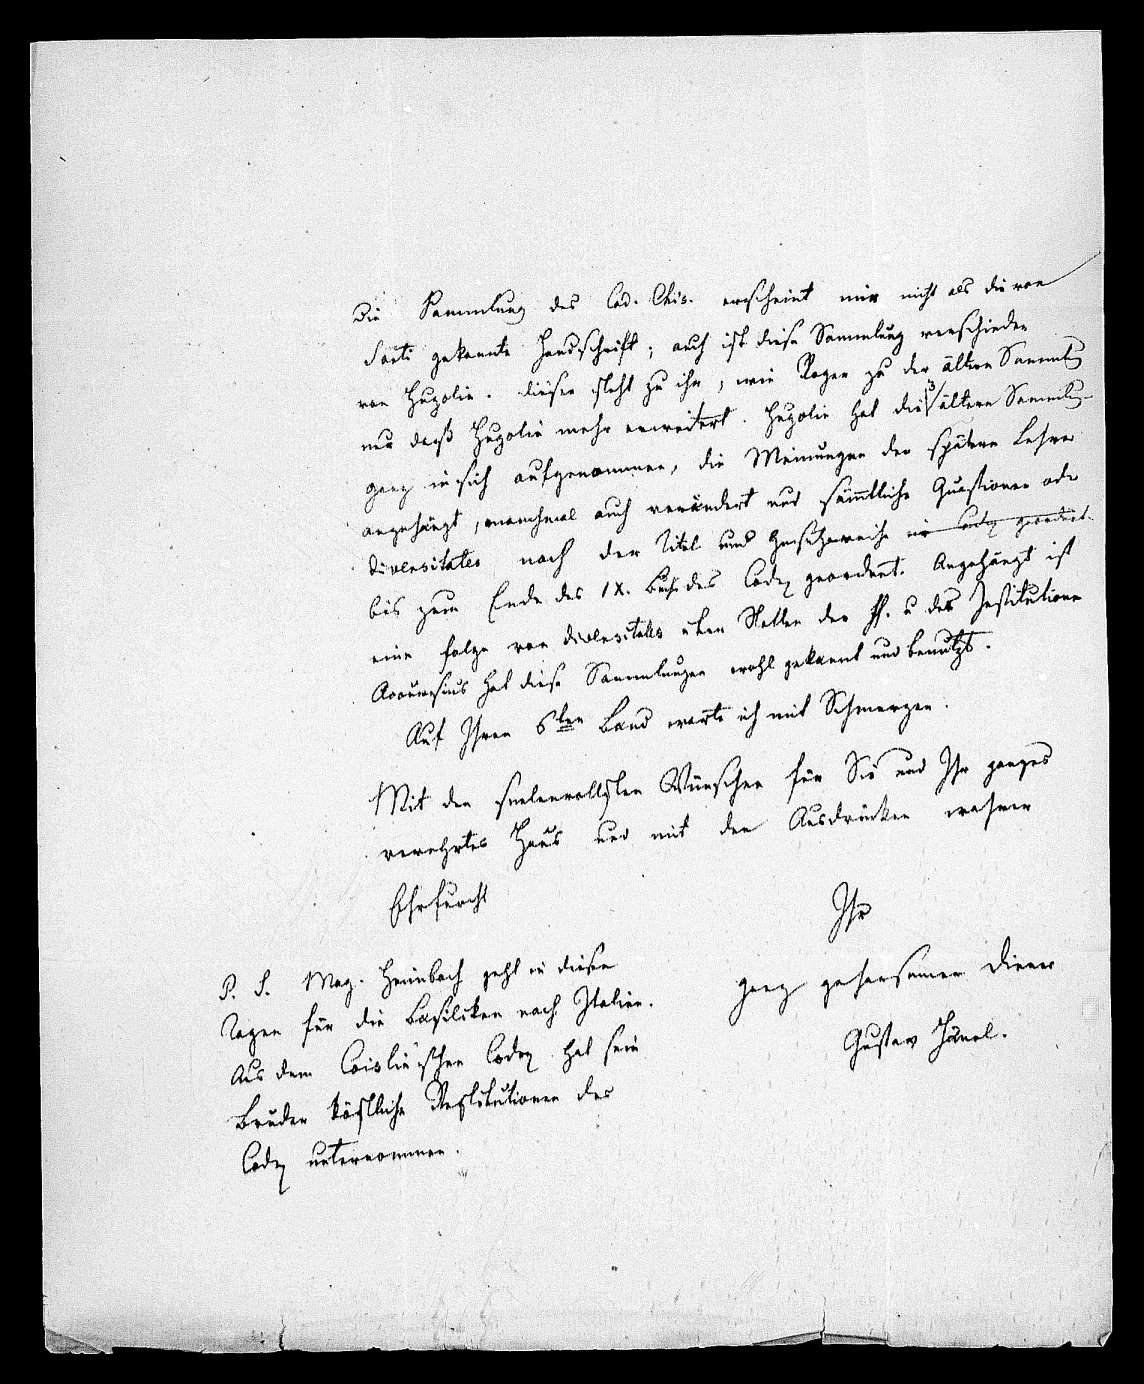 Die Sammlung des Cod. Chis. erscheint mir nicht als die von
Sarti gekannte Handschrift; auch ist diese Sammlung verschieden
von Hugolin. Dieser steht zu ihr, wie Roger zu der ältern Samml
nur daß Hugolin mehr erweitert. Hugolin hat die 3 ältern Samml
ganz in sich aufgenommen, die Meinungen der spätern Lehrer
angehängt, manchmal auch verändert und sämmtliche Quästionen oder
diversitates nach der Titel und Gesetzesreihe im Codex geordnet
bis zum Ende des IX. Buchs des Codex geordnet. Angehängt ist
eine Folge von diversitates über Stellen der ff. u der Institutionen
Accursius hat diese Sammlungen wohl gekannt und benutzt.
Auf Ihren 6ten Band warte ich mit Schmerzen.
Mit den seelenvollsten Wünschen für Sie und Ihr ganzes
verehrtes Haus und mit den Ausdrücken wahrer
Ehrfurcht
Ihr
ganz gehorsamer Diener
Gustav Hänel.
P. S. Mag. Heimbach geht in diesen
Tagen für die Basiliken nach Italien.
Aus dem Coislin'schen Codex hat sein
Bruder köstliche Restitutionen des
Codex unternommen.